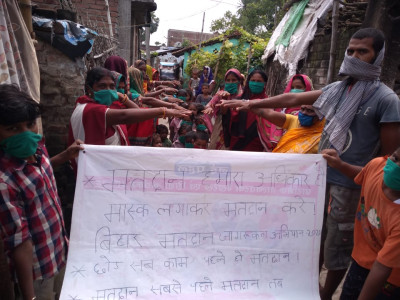 * मतदान हमारा अधिकार है
मास्क लगाकर मतदान करें।
बिहार मतदान जागरूकता अभियान
* छोड़ सब काम पहले मतदान।
* मतदान सबसे पहले मतदान